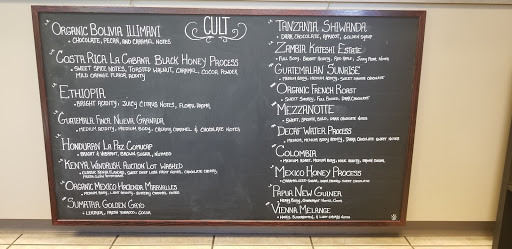 CULT
Organic Bolivia Illimani
• Chocolate, Pecan, and Caramel Notes
Costa Rica La Cabana Black Honey Process
• Sweet Spice Notes, Toasted Walnut, Caramel, Cocoa Powder,
Mild Orange Flavor Acidity
Ethiopia
• Bright Acidity, Juicy Citrus Notes, Floral Aroma
Guatemala Finca Nueva Granada
• Medium Acidity, Medium Body, Creamy Caramel & Chocolate Notes
Honduran La Paz Comucap
• Bright & Vibrant, Brown Sugar, Nutmeg
Kenya Windrush Auction Lot Washed
Organic Mexico Hacienda Maravilles
• Medium Body, Light Acidity, Caramel Notes
Sumatra Golden Gayo
• Leather, Fresh Tobacco, Cocoa
Tanzania Shiwanda
• Dark Chocolate, Apricot, Golden Syrup
Zambia Kateshi Estate
• Full Body, Bright Acidity, Red Apple, Notes
Guatemalan Sunrise
• Medium Body, Medium Acidity, Sweet Chocolate
Organic French Roast
• Sweet Smokey, Full Bodied, Dark Chocolate
Mezzanotte
• Sweet, Smooth, Bold, Dark Chocolate Notes
Decaf Water Process
• Medium, Medium Body Acidity, Dark Chocolate Notes
Colombia
• Medium Roast, Medium Body, Acidity, Brown Sugar
Mexico Honey Process
• Caramelized Sugar, Sweet Chocolate
Papua New Guinea
• Heavy Body,
Vienna Melange
• Heavy, Buttersmooth, & Light Smokey Notes